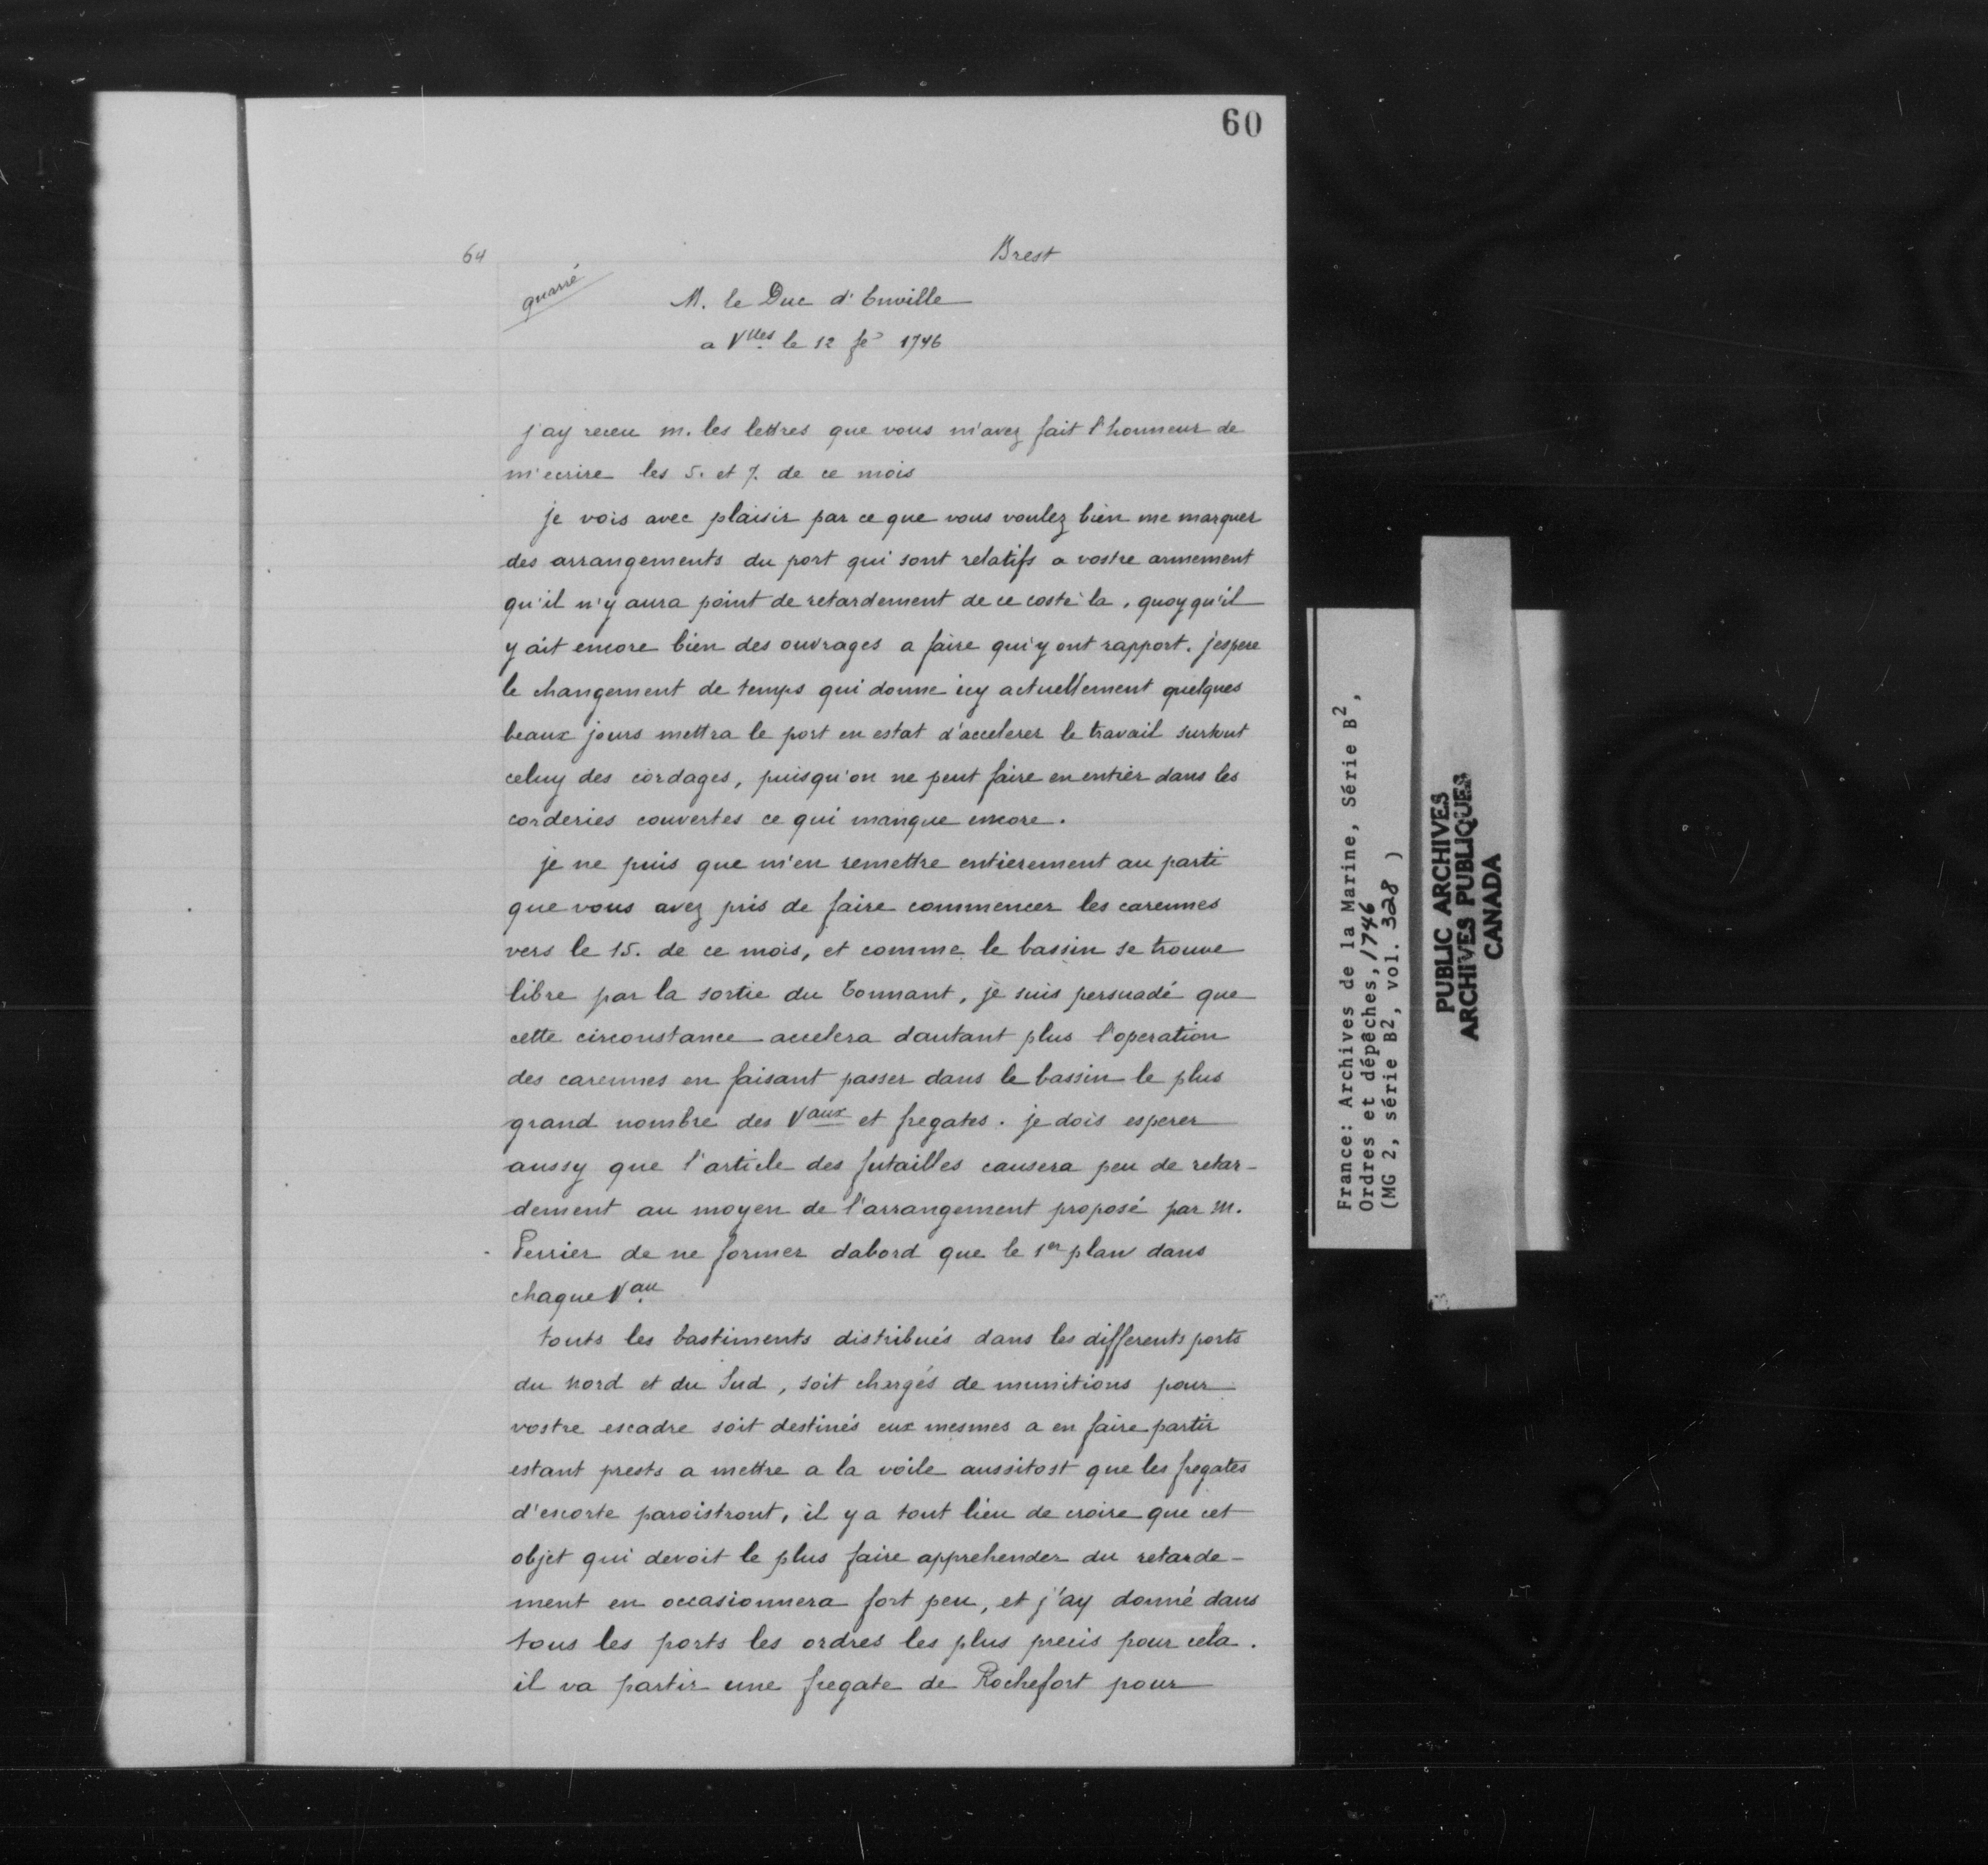 60
64
Brest
quarré
M. le Duc d'Enville
a Vlles le 12 fe 1746
j'ay receu m. les lettres que vous m'avez fait l'honneur de
m'ecrire les 5. et 7. de ce mois
je vois avec plaisir par ce que vous voulez bien me marquer
des arrangements du port qui sont relatifs a vostre armement
qu'il n'y aura point de retardement de ce costé la, quoy qu'il
y ait encore bien des ouvrages a faire qui y ont rapport. j'espere
le changement de temps qui donne icy actuellement quelques
beaux jours mettra le port en estat d'accelerer le travail surtout
celuy des cordages, puisqu'on ne peut faire en entier dans les
corderies couvertes ce qui manque encore.
je ne puis que m'en remettre entierement au parti
que vous avez pris de faire commencer les carennes
vers le 15. de ce mois, et comme le bassin se trouve
libre par la sortie du Tonnant, je suis persuadé que
cette circonstance accelera dautant plus l'operation
des carennes en faisant passer dans le bassin le plus
grand nombre des Vaux et fregates. je dois esperer
aussy que l'article des futailles causera peu de retar-
dement au moyen de l'arrangement proposé par M.
Perrier de ne former dabord que le 1er plan dans
chaque Vau
touts les bastiments distribués dans les differents ports
du nord et du Sud, soit chargés de munitions pour
vostre escadre soit destinés eux mesmes a en faire partir
estant prests a mettre a la voile aussitost que les fregates
d'escorte paroistront, il y a tout lieu de croire que cet
objet qui devoit le plus faire apprehender du retarde-
ment en occasionnera fort peu, et j'ay donné dans
tous les ports les ordres les plus precis pour cela.
il va partir une fregate de Rochefort pour
France: Archives de la Marine, Série B2,
Ordres et dépêches, 1746
(MG 2, série B2, vol. 328 )
PUBLIC ARCHIVES
ARCHIVES PUBLIQUES
CANADA